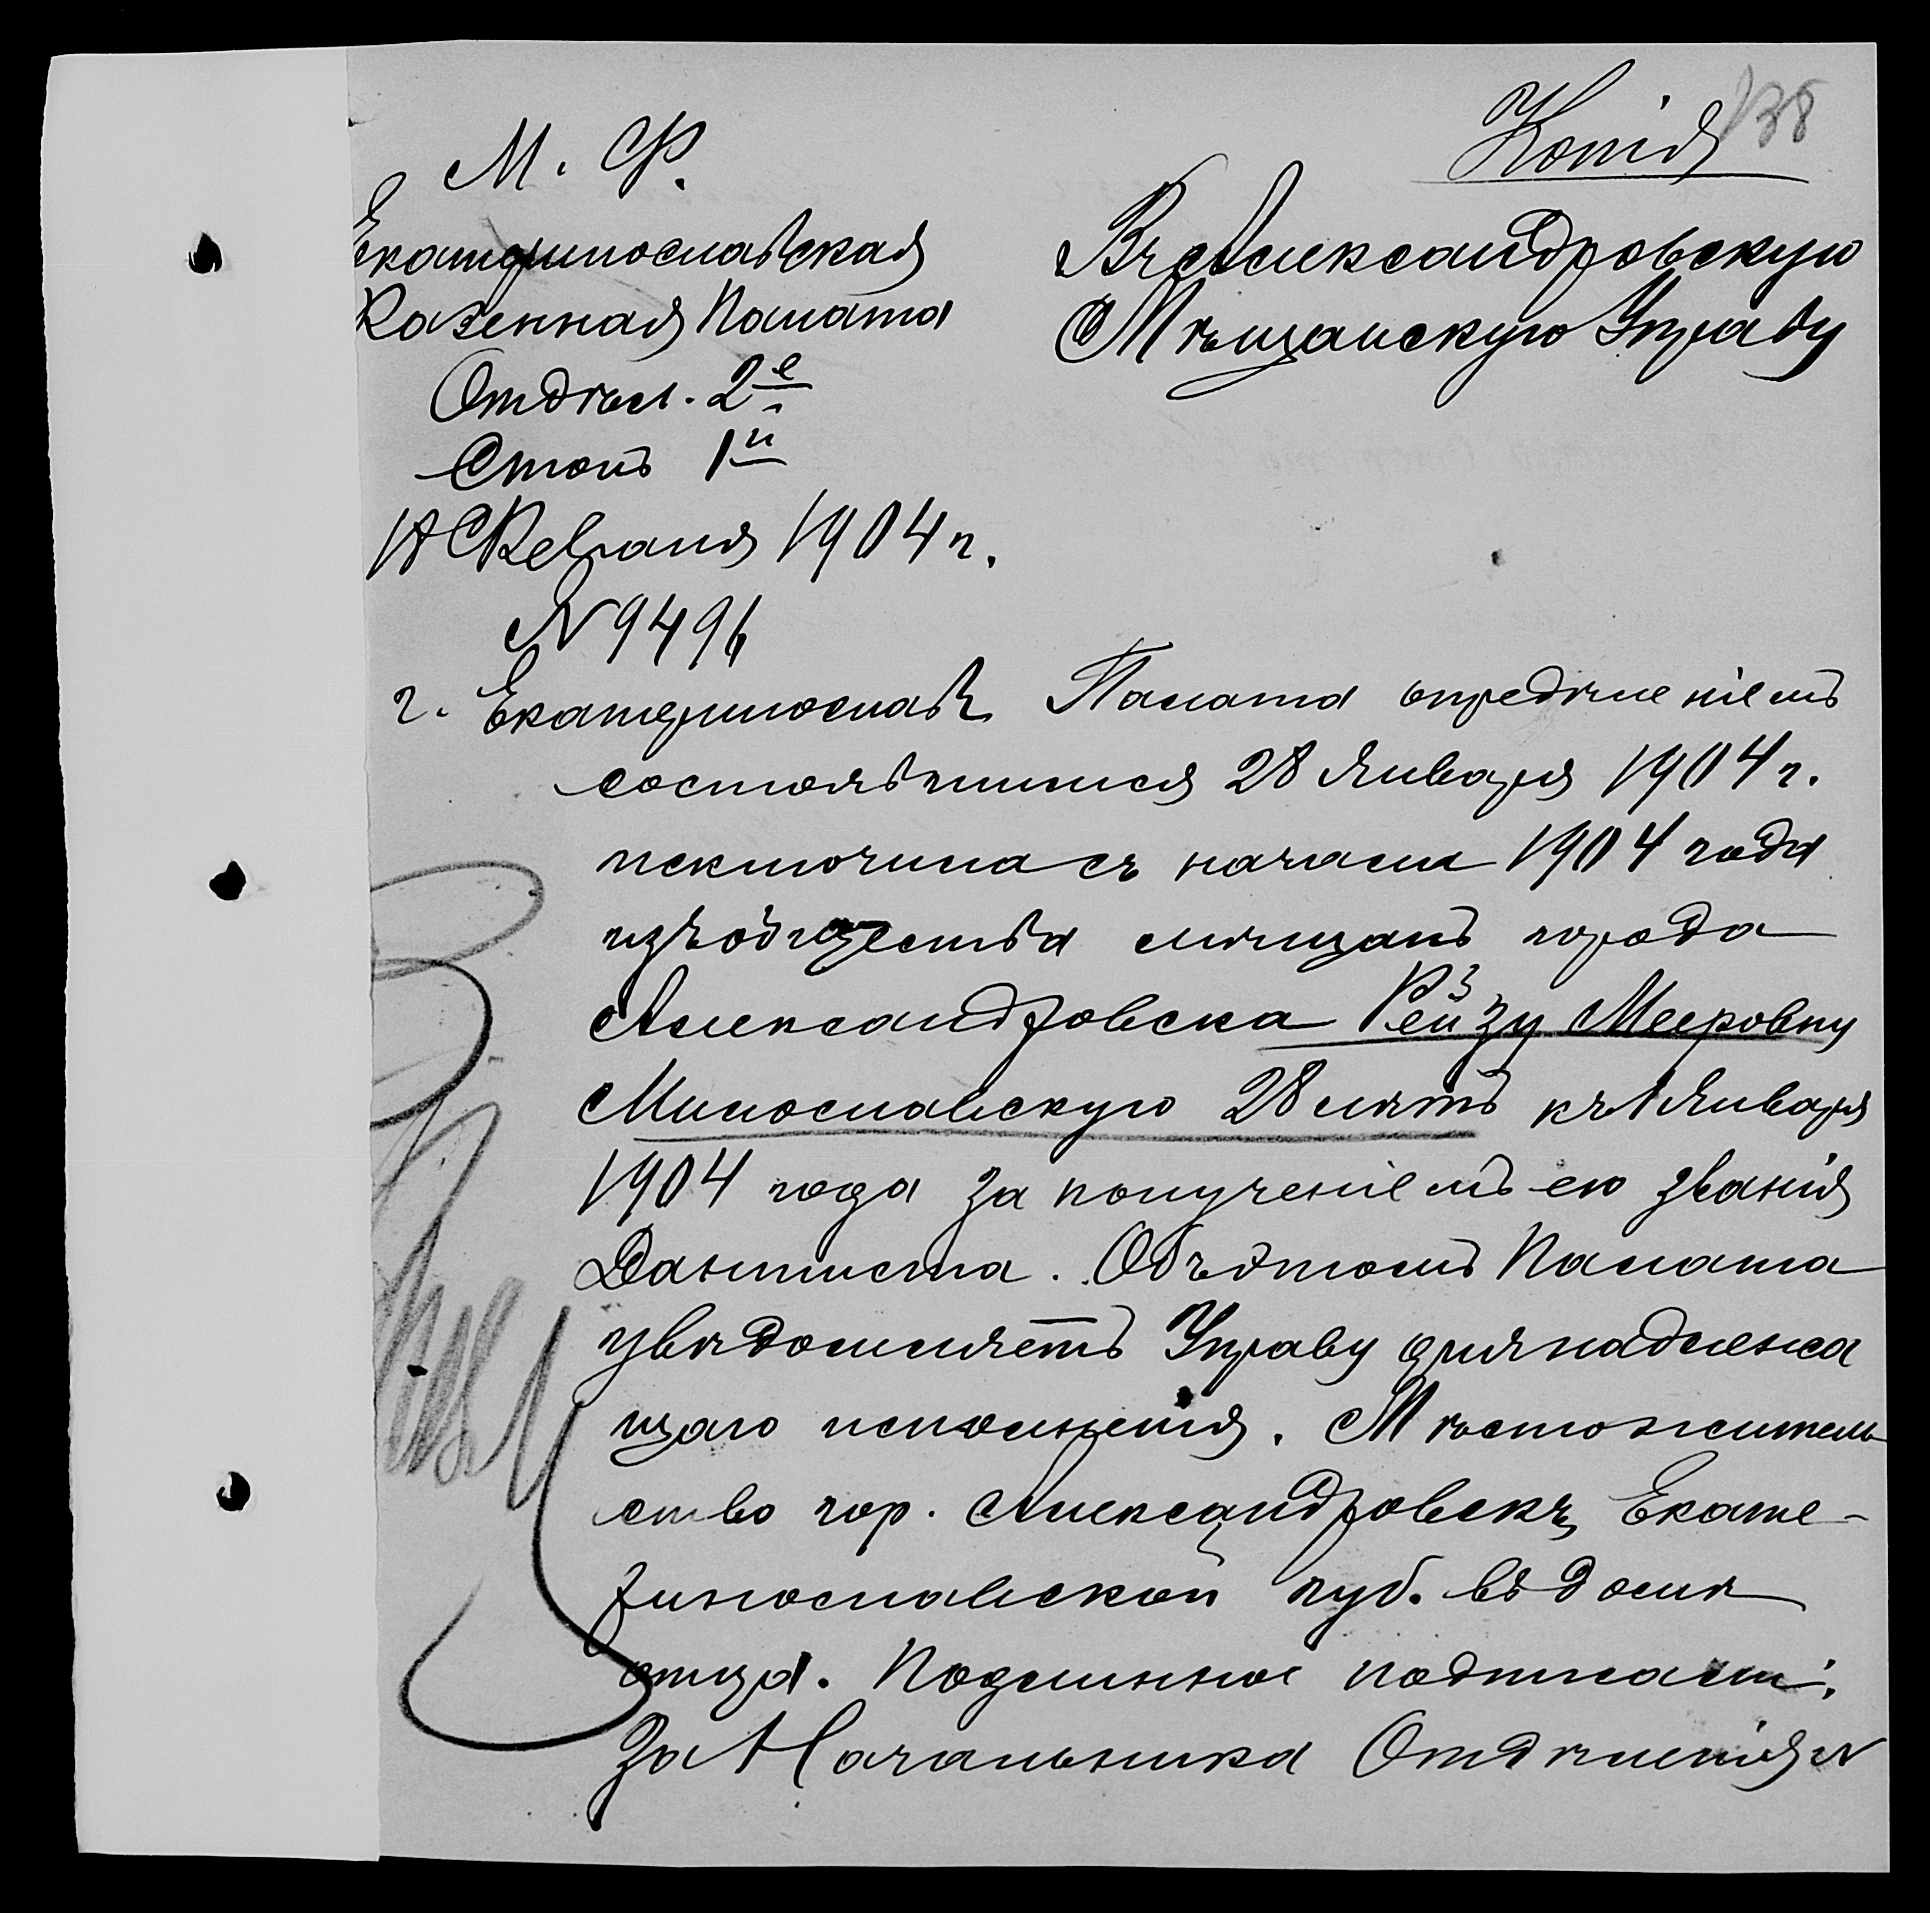 138
Копія
М. Ф.
Екатеринославская
Казенная Палата
Отдѣл. 2е
Столъ 1й
Февраля 1904 г.
N 9496
г. Екатеринославъ
Въ Александровскую
Мѣщанскую Управу
Палата опредѣленіемъ
состоявшимся 28 Января 1904 г.
исключила съ начала 1904 года
изъ общества мѣщанъ города
Александровска Рейзу Мееровну
Милославскую 28 лѣтъ къ 1 Января
1904 года за полученіемъ ею званія
Дантиста. Объ этомъ Палата
увѣдомляетъ Управу для надлежа
щаго исполненія. Мѣстожитель
ство гор. Александровскъ Екате-
ринославской губ. въ домѣ
отца. Подлинное подписали:
За Начальника Отдѣленія